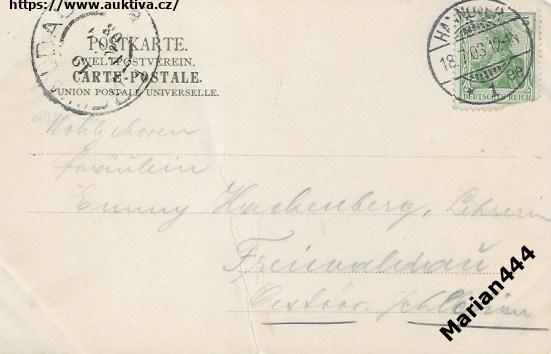 https://www.auktiva.cz/
POSTKARTE.
WELTPOSTVEREIN.
CARTE-POSTALE.
UNION POSTALE UNIVERSELLE.
HANNOVER
18.7.03.12-1N
* 1 *
DEUTSCHES REICH
Wohlgeboren
Fräulein
Emmy Hackenberg, Lehrerin
Freiwaldau
Oesterr. Schlesien
Marian444